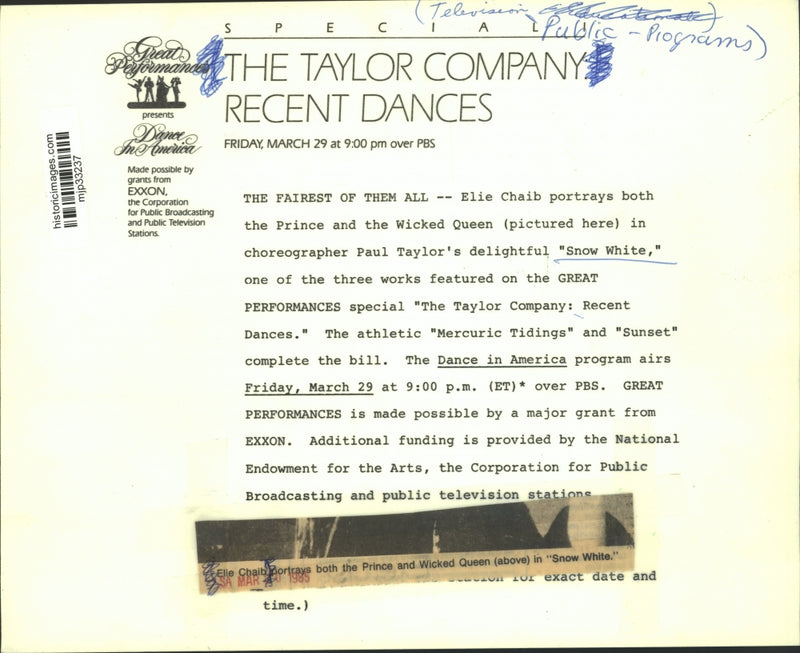 (Television
Public - Programs)
S P E C I A L
Great
Performances
presents
Dance
In America
Made possible by
grants from
EXXON,
the Corporation
for Public Broadcasting
and Public Television
Stations.
historicimages.com
mjp33237
THE TAYLOR COMPANY
RECENT DANCES
FRIDAY, MARCH 29 at 9:00 pm over PBS
THE FAIREST OF THEM ALL -- Elie Chaib portrays both
the Prince and the Wicked Queen (pictured here) in
choreographer Paul Taylor's delightful "Snow White,"
one of the three works featured on the GREAT
PERFORMANCES special "The Taylor Company: Recent
Dances." The athletic "Mercuric Tidings" and "Sunset"
complete the bill. The Dance in America program airs
Friday, March 29 at 9:00 p.m. (ET)* over PBS. GREAT
PERFORMANCES is made possible by a major grant from
EXXON. Additional funding is provided by the National
Endowment for the Arts, the Corporation for Public
Broadcasting and public television stations
Elie Chaib portrays both the Prince and Wicked Queen (above) in "Snow White."
SA MAR 1985
station for exact date and
time.)